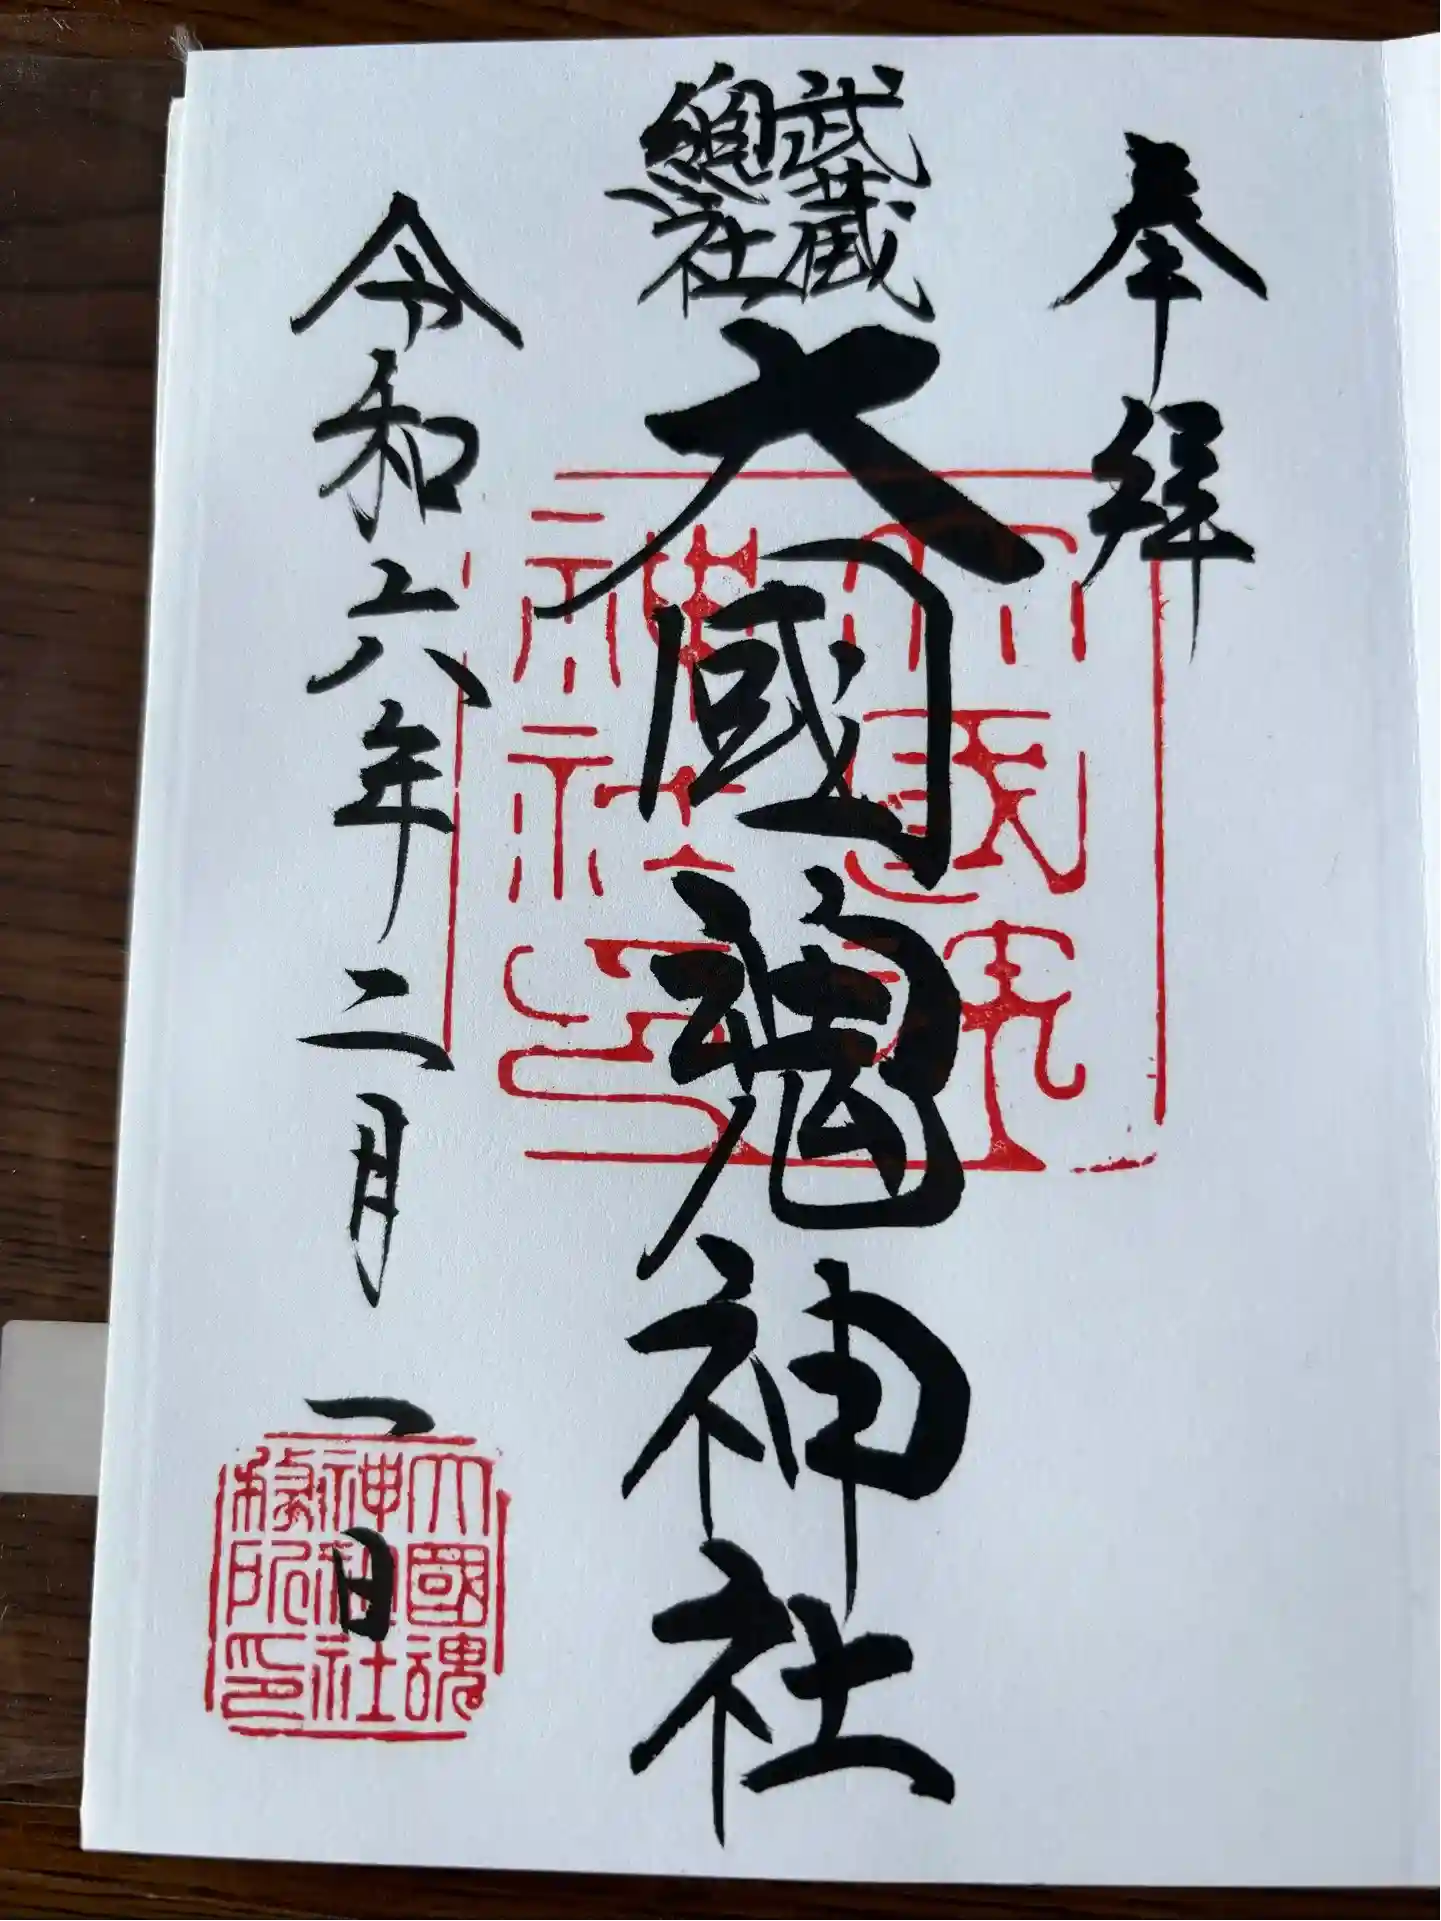 奉拝
武蔵
總社
大國魂神社
令和六年二月一日
大國魂
神社印
大國魂
神社社
務所印